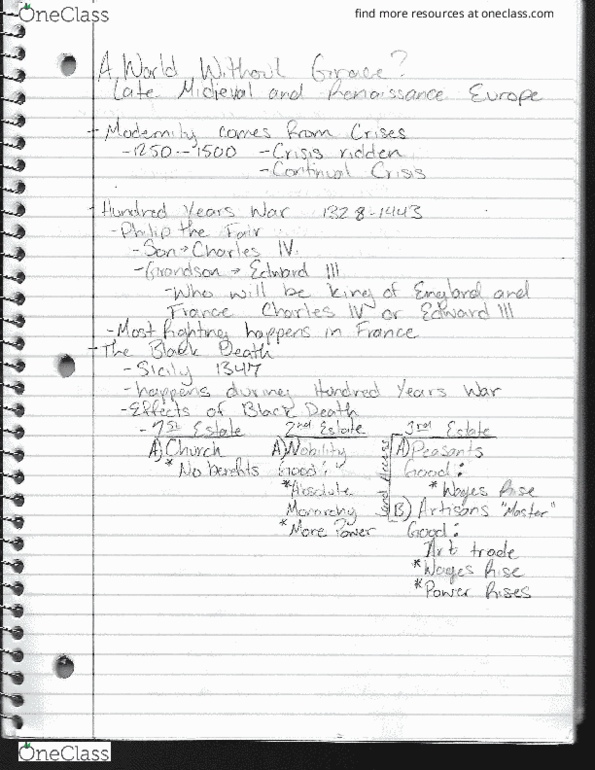 OneClass
find more resources at oneclass.com
A World Without Grace?
Late Midieval and Renaissance Europe
- Modernity comes from Crises
- 1250 - 1500 - Crisis ridden
- Continual Crisis
- Hundred Years War 1328-1443
- Philip the Fair
- Son → Charles IV
- Grandson → Edward III
- Who will be king of England and
France Charles IV or Edward III
- Most fighting happens in France
- The Black Death
- Sicily 1347
- happens during Hundred Years War
- Effects of Black Death
- 1st Estate 2nd Estate 3rd Estate
A) Church A) Nobility A) Peasants
* No benfits Good: Good:
* Absolute * Wages Rise
Monarchy B) Artisans "Master"
* More Power Good:
Art trade
* Wages Rise
* Power Rises
OneClass